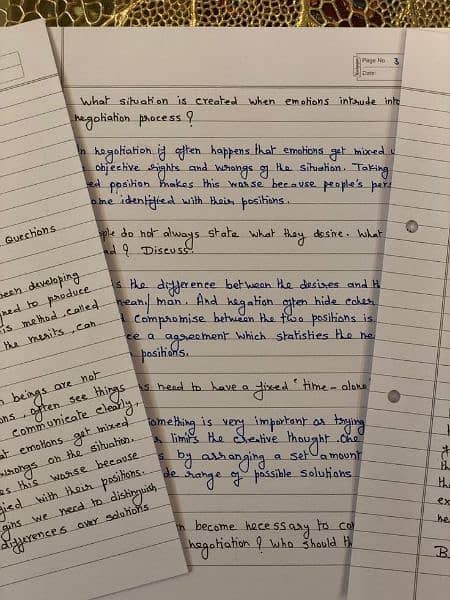 Page No. 3
Date:
What situation is created when emotions intrude into
negotiation process ?
In negotiation it often happens that emotions get mixed
objective rights and wrongs of the situation. Taking
position makes this worse because people's
identified with their positions.
do not always state what they desire. What
? Discuss.
the difference between the desires and
man. And negation often hide
compromise between the two positions is
a agreement which statisties the
positions.
need to have a fixed "time-
something is very important as trying
limits the creative thought. One
by arranging a set amount
range of possible solutions
become necessary to
negotiation ? Who should
Questions
been developing
to produce
is method, called
the merits, can
beings are not
often see things
communicate clearly.
at emotions get mixed
wrongs on the situation.
this worse because
with their positions.
we need to distinguish
differences over solutions
th
th
ex
he
B